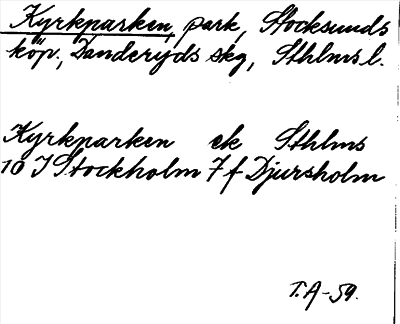 Kyrkparken, park, Stocksunds
köp., Danderyds skg, Sthlms l.
Kyrkparken ek Sthlms
10 I Stockholm 7 f Djursholm
T.A-59.